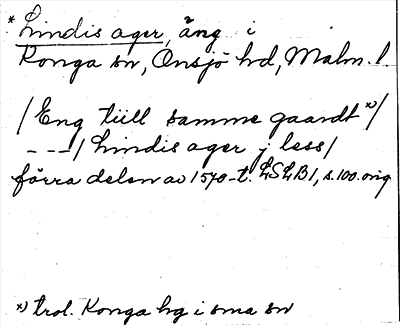 * Lindis ager, äng i
Konga sn, Onsjö hd, Malm. l.
/Eng tiill samme gaardt *)/
- - -/ Lindis ager j less/
förra delen av 1570-t. LSLB1, s. 100. orig
*) trol. Konga by i sma sn